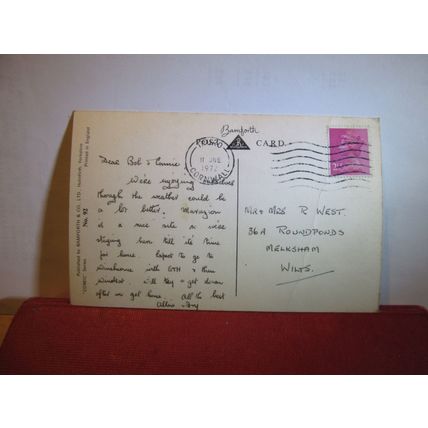 Bamforth
POST CARD.
11 JNE
1972
CORNWALL
2½
Dear Bob & Connie
We're enjoying ourselves
though the weather could be
a lot better. Marazion
is a nice site & we're
staying here till it's time
for home. Expect to go to
with &
Windsor. Will try & get down
after we get home. All the best
MR & MRS R WEST.
36A ROUNDPONDS
MELKSHAM
WILTS.
Published by BAMFORTH & CO. LTD., Holmfirth, Yorkshire
"COMIC" Series No. 92 Printed in England